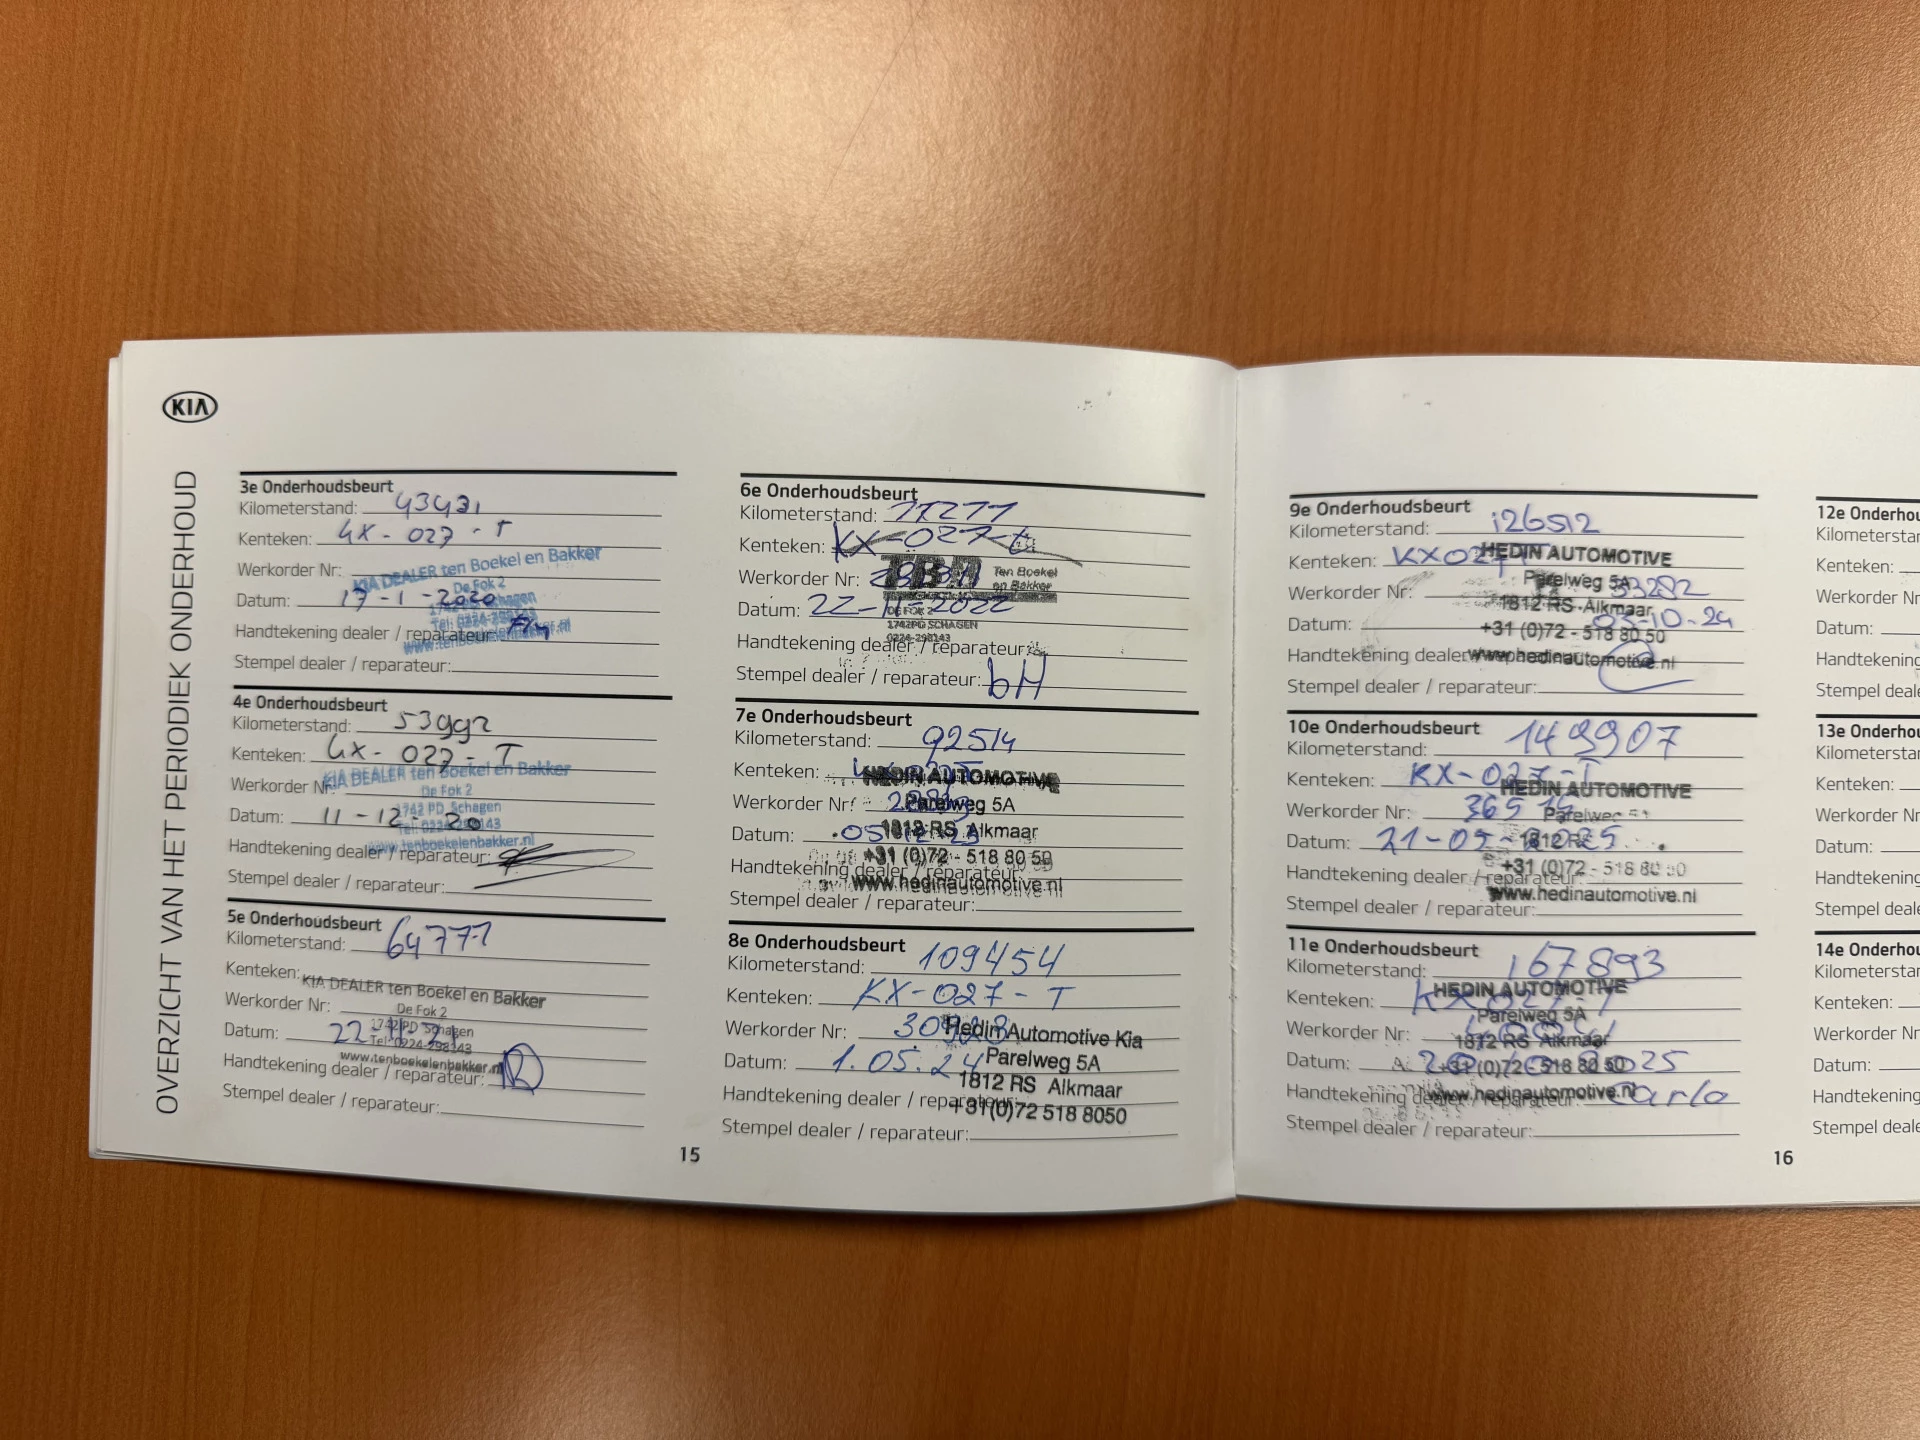 KIA
OVERZICHT VAN HET PERIODIEK ONDERHOUD
3e Onderhoudsbeurt
Kilometerstand: 43431
Kenteken: GX - 027 - T
Werkorder Nr:
KIA DEALER ten Boekel en Bakker
De Fok 2
Datum: 17-1-2020
1742 PD Schagen
Tel: 0224-298143
Handtekening dealer / reparateur:
www.tenboekelenbakker.nl
Stempel dealer / reparateur:
4e Onderhoudsbeurt
Kilometerstand: 53992
Kenteken: GX - 027 - T
KIA DEALER ten Boekel en Bakker
Werkorder Nr:
De Fok 2
1742 PD Schagen
Datum: 11-12-20
Tel: 0224-298143
www.tenboekelenbakker.nl
Handtekening dealer / reparateur:
Stempel dealer / reparateur:
5e Onderhoudsbeurt
Kilometerstand: 64771
Kenteken:
KIA DEALER ten Boekel en Bakker
Werkorder Nr:
De Fok 2
1742 PD Schagen
Datum: 22-11-21
Tel: 0224-298143
www.tenboekelenbakker.nl
Handtekening dealer / reparateur:
Stempel dealer / reparateur:
6e Onderhoudsbeurt
Kilometerstand: 77277
Kenteken: KX-027-t
Werkorder Nr:
TBA Ten Boekel
en Bakker
Datum: 22-11-2022
DE FOK 2
1742PD SCHAGEN
0224-298143
Handtekening dealer / reparateur:
Stempel dealer / reparateur: bH
7e Onderhoudsbeurt
Kilometerstand: 92514
Kenteken:
HEDIN AUTOMOTIVE
Werkorder Nr:
Parelweg 5A
Datum:
1812 RS Alkmaar
+31 (0)72 - 518 80 50
Handtekening dealer / reparateur:
www.hedinautomotive.nl
Stempel dealer / reparateur:
8e Onderhoudsbeurt
Kilometerstand: 109454
Kenteken: KX-027-T
Werkorder Nr: 30928
Hedin Automotive Kia
Datum: 1.05.24
Parelweg 5A
1812 RS Alkmaar
Handtekening dealer / reparateur:
+31(0)72 518 8050
Stempel dealer / reparateur:
15
9e Onderhoudsbeurt
Kilometerstand: 126512
Kenteken: KX027T
HEDIN AUTOMOTIVE
Parelweg 5A
Werkorder Nr: 33282
1812 RS Alkmaar
Datum: 03-10-24
+31 (0)72 - 518 80 50
Handtekening dealer
www.hedinautomotive.nl
Stempel dealer / reparateur:
10e Onderhoudsbeurt
Kilometerstand: 149907
Kenteken: KX-027-T
HEDIN AUTOMOTIVE
Werkorder Nr:
Parelweg 5A
Datum: 21-05-2025
1812 RS
+31 (0)72 - 518 80 50
Handtekening dealer / reparateur:
www.hedinautomotive.nl
Stempel dealer / reparateur:
11e Onderhoudsbeurt
Kilometerstand: 167893
Kenteken: KX027-T
HEDIN AUTOMOTIVE
Parelweg 5A
Werkorder Nr:
1812 RS Alkmaar
Datum:
+31 (0)72 - 518 80 50
Handtekening dealer / reparateur: Carlo
www.hedinautomotive.nl
Stempel dealer / reparateur:
16
12e Onderhou
Kilometerstan
Kenteken:
Werkorder Nr:
Datum:
Handtekening
Stempel deale
13e Onderhou
Kilometerstan
Kenteken:
Werkorder Nr:
Datum:
Handtekening
Stempel deale
14e Onderhou
Kilometerstan
Kenteken:
Werkorder Nr
Datum:
Handtekening
Stempel deale